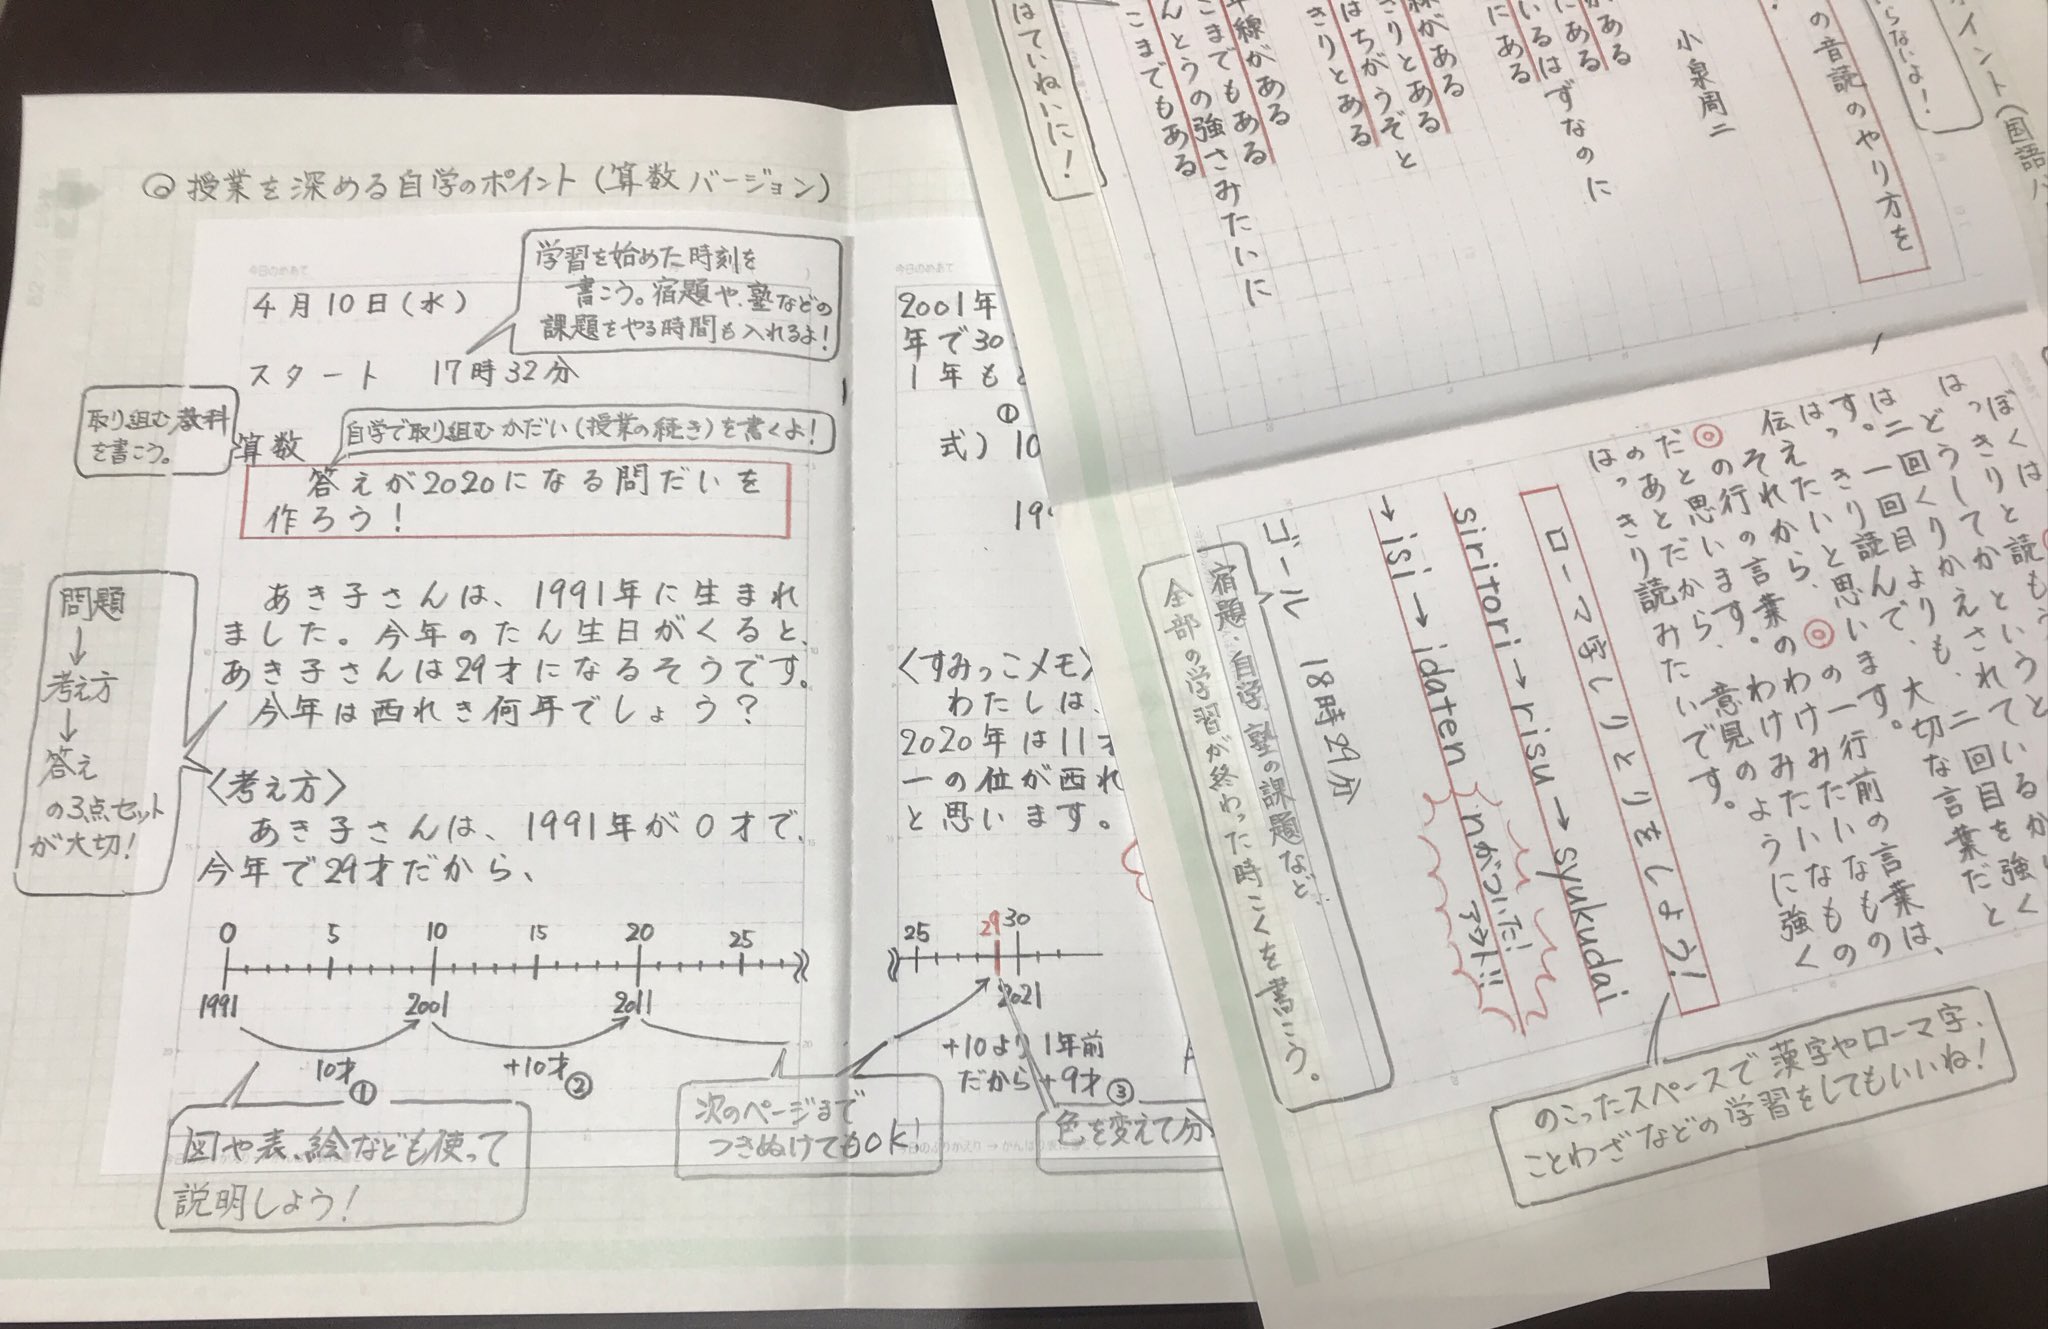 ◎授業を深める自学のポイント(算数バージョン)
4月10日(水)
学習を始めた時刻を
書こう。宿題や、塾などの
課題をやる時間も入れるよ!
スタート 17時32分
取り組む教科
を書こう。
算数
自学で取り組むかだい(授業の続き)を書くよ!
答えが2020になる問だいを
作ろう!
問題
↓
考え方
↓
答え
の3点セット
が大切!
あき子さんは、1991年に生まれ
ました。今年のたん生日がくると、
あき子さんは29才になるそうです。
今年は西れき何年でしょう?
〈考え方〉
あき子さんは、1991年が0才で、
今年で29才だから、
0 5 10 15 20 25
1991 2001 2011
10才① +10才②
図や表、絵なども使って
説明しよう!
次のページまで
つきぬけてもOK!
2001年
年で30
1年も
①
式) 10
19
〈すみっこメモ〉
わたしは、
2020年は11才
一の位が西れ
と思います。
25 29 30
2021
+10より1年前
だから+9才③
色を変えて分
ポイント(国語バ
らないよ!
の音読のやり方を
小泉周二
がある
にある
いるはずなのに
にある
線がある
きりとある
はちがうぞと
きりとある
年線がある
こまでもある
んとうの強さみたいに
こまでもある
はていねいに!
ぼくは
はっきりと読もう
どうしてかというと
二回くりかえされているから
は一回目よりも、二回目を強く
す。
はっきり読んで、大切な言葉だと
伝えたいと思います。
それから、◎の一行前の言葉は、
◎の行の言葉のわけみたいなもの
だと思います。わけみたいなもの
のあとだから、意見のように強く
はっきり読みたいです。
ローマ字しりとりをしよう!
siritori→risu→syukudai
→isi→idaten
nがついた!
アウト!!
ゴール 18時29分
宿題・自学・塾の課題など
全部の学習が終わった時こくを書こう。
のこったスペースで漢字やローマ字、
ことわざなどの学習をしてもいいね!